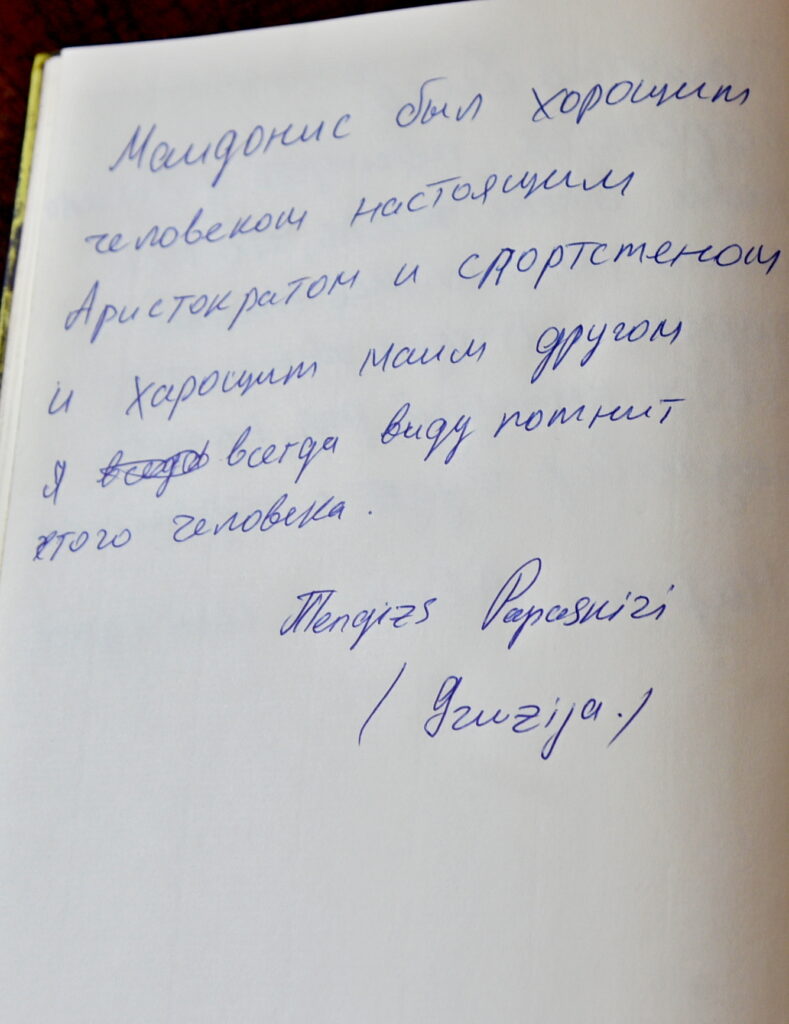 Маидонис был хорошим
человеком настоящим
Аристократом и спортстеном
и харошим маим другом
Я всегда виду потнит
этого человека.
Tengizs Papaskizi
(Gruzija.)